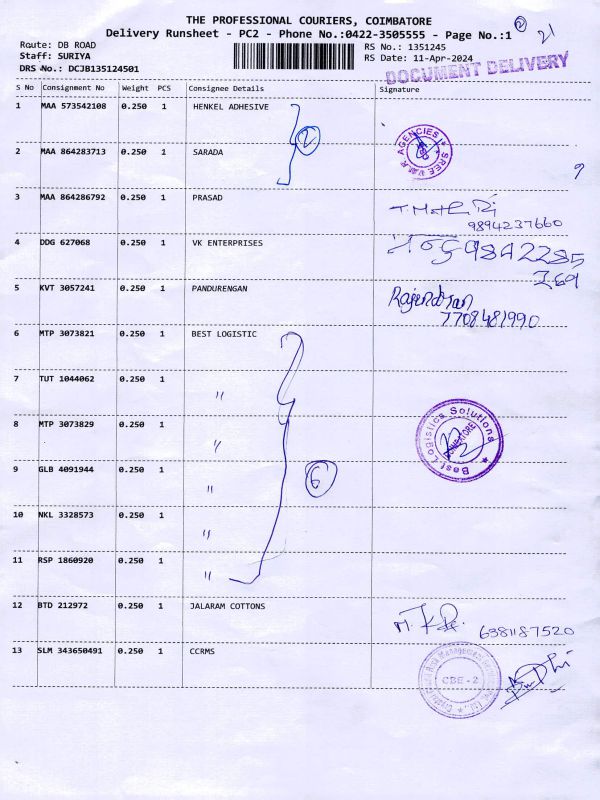 THE PROFESSIONAL COURIERS, COIMBATORE
Delivery Runsheet - PC2 - Phone No.:0422-3505555 - Page No.:1 2 21
Route: DB ROAD
Staff: SURIYA
DRS No.: DCJB135124501
RS No.: 1351245
RS Date: 11-Apr-2024
DOCUMENT DELIVERY
S No Consignment No Weight PCS Consignee Details Signature
1 MAA 573542108 0.250 1 HENKEL ADHESIVE
2
SREE V.M.R AGENCIES
2 MAA 864283713 0.250 1 SARADA
3 MAA 864286792 0.250 1 PRASAD
9894237660
4 DDG 627068 0.250 1 VK ENTERPRISES
9842285
269
5 KVT 3057241 0.250 1 PANDURENGAN Rajendran
7708481990
6 MTP 3073821 0.250 1 BEST LOGISTIC
7 TUT 1044062 0.250 1 "
8 MTP 3073829 0.250 1 "
Best Logistics Solutions
COIMBATORE
9 GLB 4091944 0.250 1 " 6
10 NKL 3328573 0.250 1 "
11 RSP 1860920 0.250 1 "
12 BTD 212972 0.250 1 JALARAM COTTONS
6381187520
13 SLM 343650491 0.250 1 CCRMS
CBE - 2